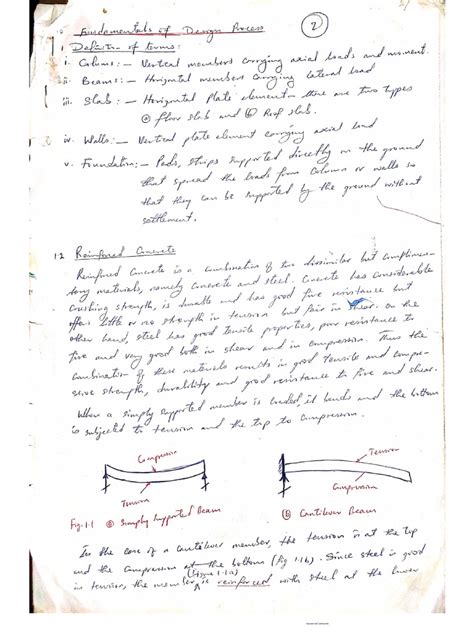 1.0 Fundamentals of Design Process
2
Definition of terms:
i. Column: — Vertical members carrying axial loads and moment.
ii. Beams: — Horizontal members carrying lateral load
iii. Slab: — Horizontal Plate element — there are two types
(a) Floor slab and (b) Roof slab.
iv. Walls: — Vertical plate element carrying axial load
v. Foundation: — Pads, strips supported directly on the ground
that spread the loads from column or walls so
that they can be supported by the ground without
settlement.
1.2 Reinforced Concrete
Reinforced Concrete is a combination of two dissimilar but complimen-
tary materials, namely concrete and steel. Concrete has considerable
crushing strength, is durable and has good fire resistance but
offers little or no strength in tension but fair in shear. On the
other hand, steel has good tensile properties, poor resistance to
fire and very good both in shear and in compression. Thus the
combination of these materials results in good tensile and compre-
ssive strength, durability and good resistance to fire and shear.
When a simply supported member is loaded, it bends and the bottom
is subjected to tension and the top to compression.
Compression
Tension
Tension
Compression
Fig 1.1 (a) Simply Supported Beam
(b) Cantilever Beam
In the case of a cantilever member, the tension is at the top
and the compression at the bottom (fig 1.1b). Since steel is good
(figure 1.1a)
in tension, the member is reinforced with steel at the lower